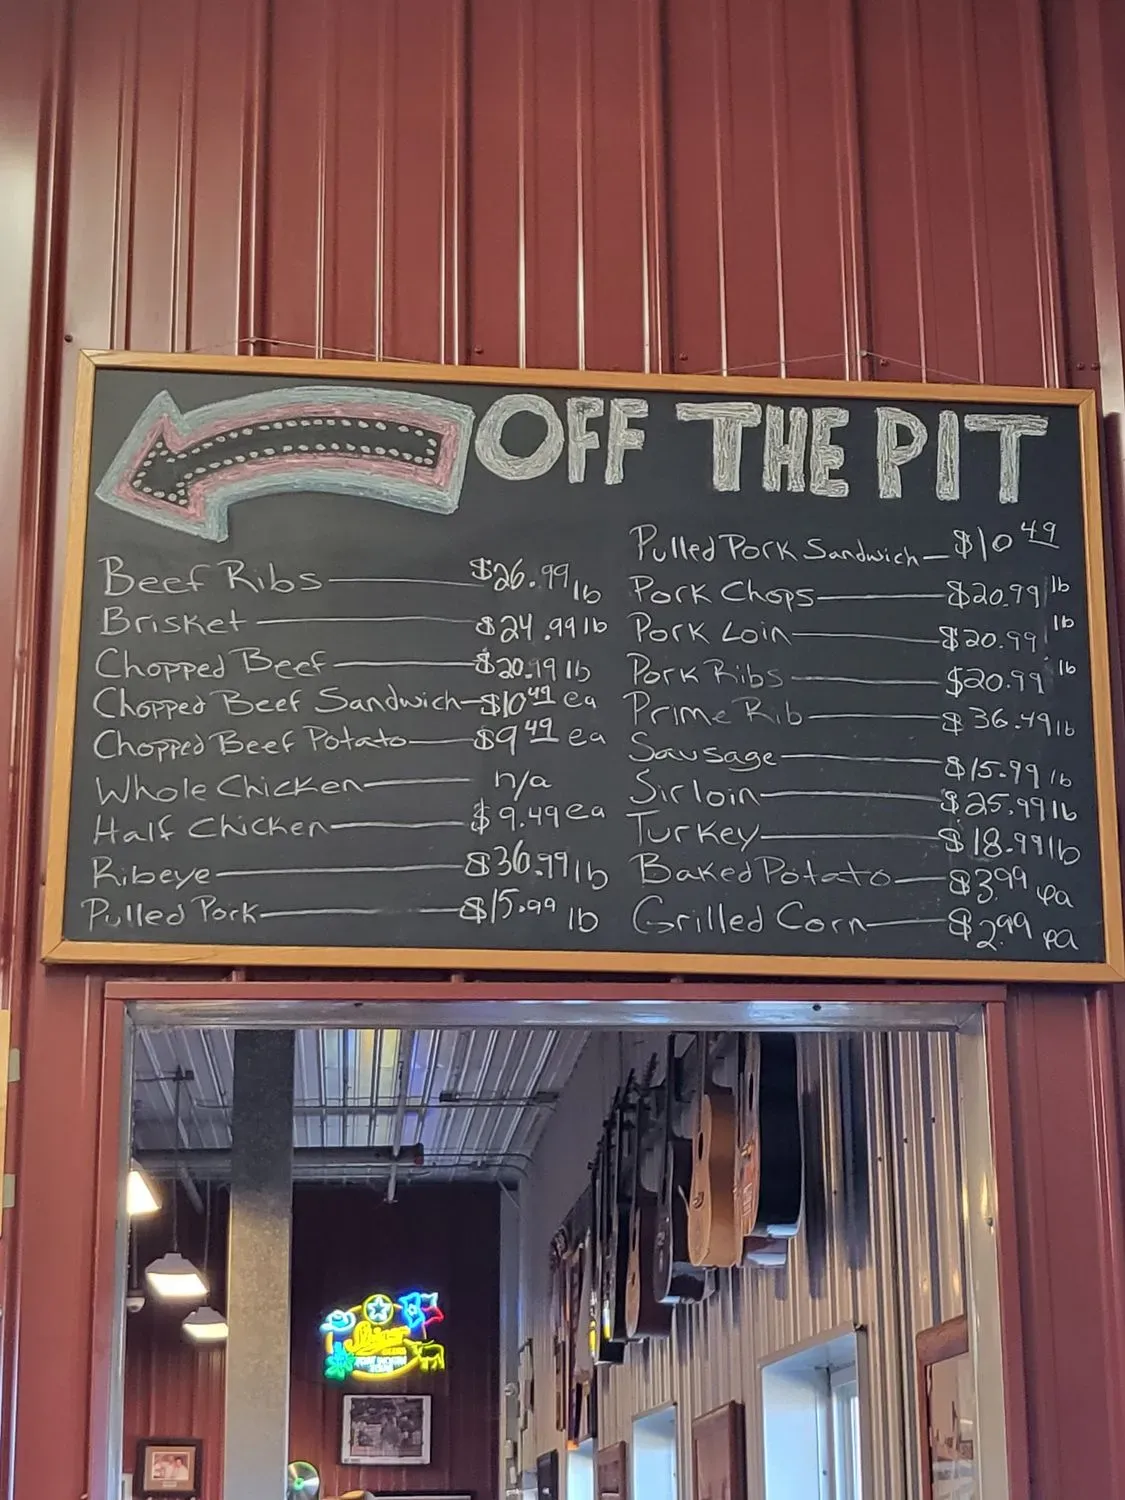 OFF THE PIT
Beef Ribs $26.99 lb
Brisket $24.99 lb
Chopped Beef $20.99 lb
Chopped Beef Sandwich $10.49 ea
Chopped Beef Potato $9.49 ea
Whole Chicken n/a
Half Chicken $9.49 ea
Ribeye $36.99 lb
Pulled Pork $15.99 lb
Pulled Pork Sandwich $10.49
Pork Chops $20.99 lb
Pork Loin $20.99 lb
Pork Ribs $20.99 lb
Prime Rib $36.49 lb
Sausage $15.99 lb
Sirloin $25.99 lb
Turkey $18.99 lb
Baked Potato $3.99 ea
Grilled Corn $2.99 ea
Shiner